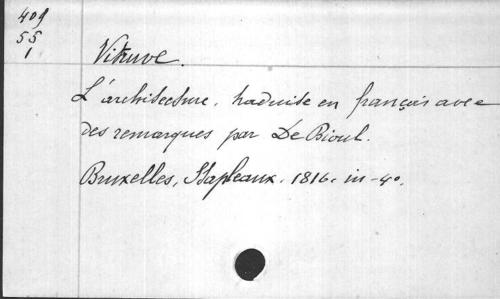 409
55
1
Vitruve.
L'architecture, traduite en français avec
des remarques par De Bioul.
Bruxelles, Stapleaux. 1816. in-4o.